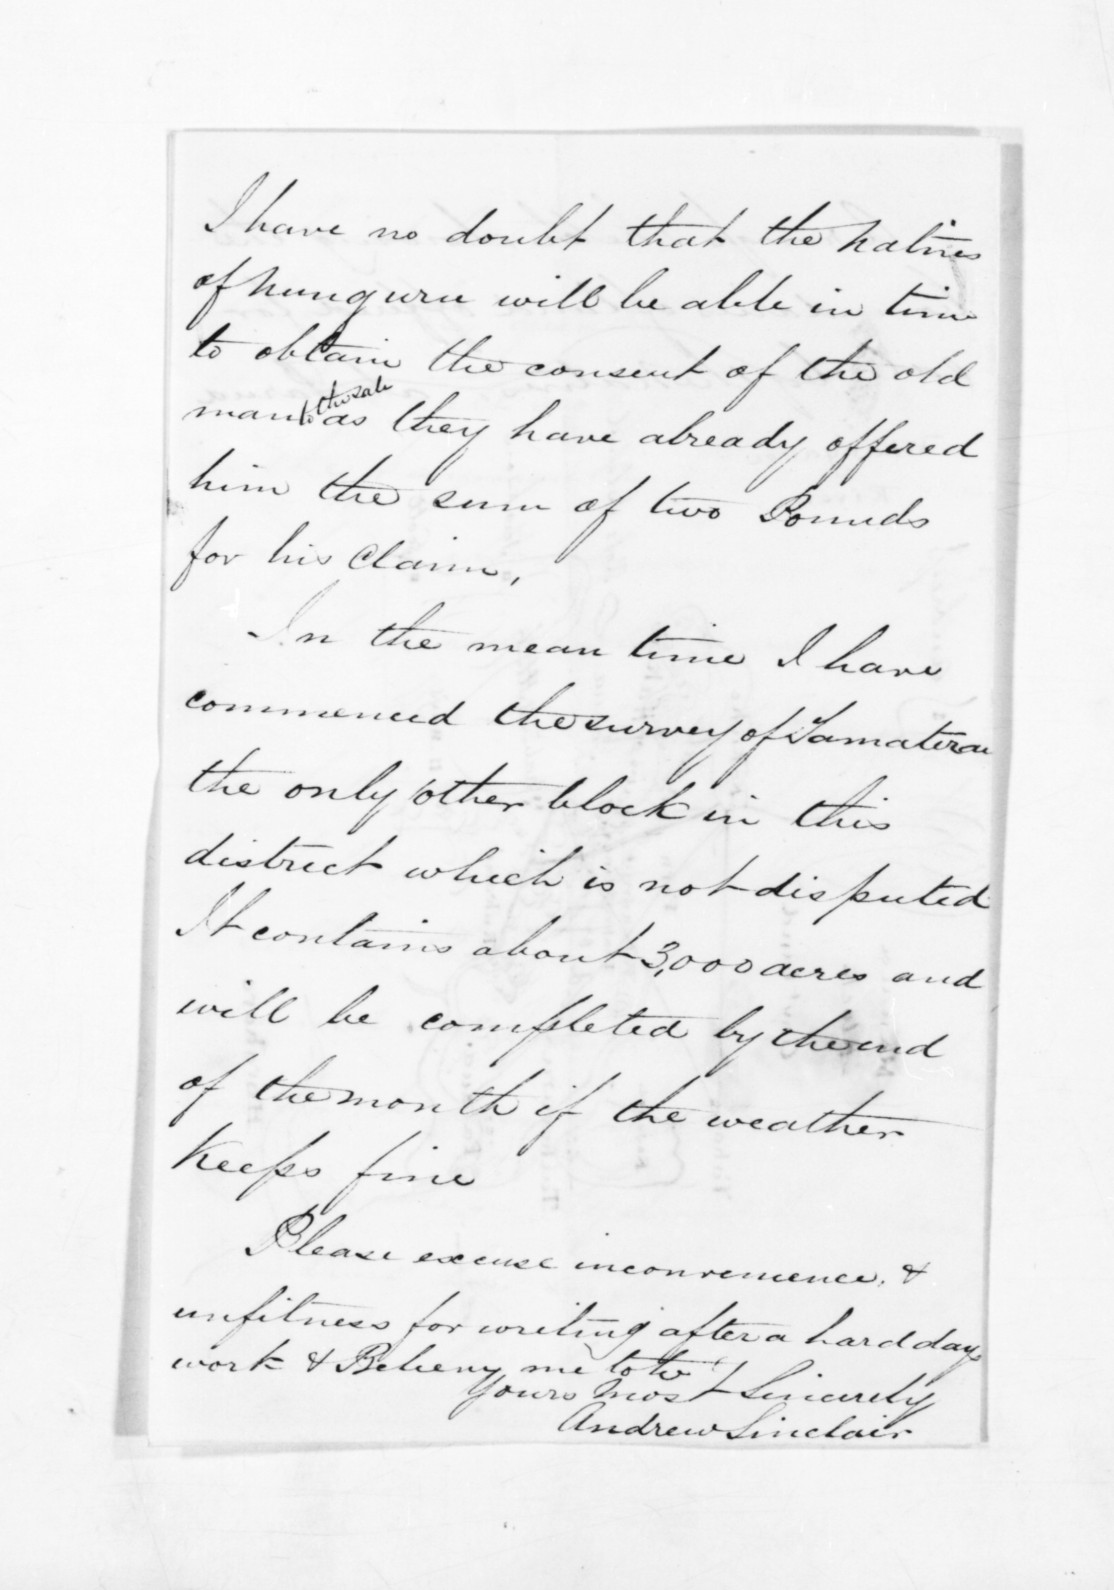 I have no doubt that the natives
of nunguru will be able in time
to obtain the consent of the old
man to the sale as they have already offered
him the sum of two Pounds
for his Claim,
In the mean time I have
commenced the survey of Tamaterau
the only other block in this
district which is not disputed
It contains about 3,000 acres and
will be completed by the end
of the month if the weather
keeps fine
Please excuse inconvenience, &
unfitness for writing after a hard days
work & me to be
Yours Most Sincerely
Andrew Sinclair